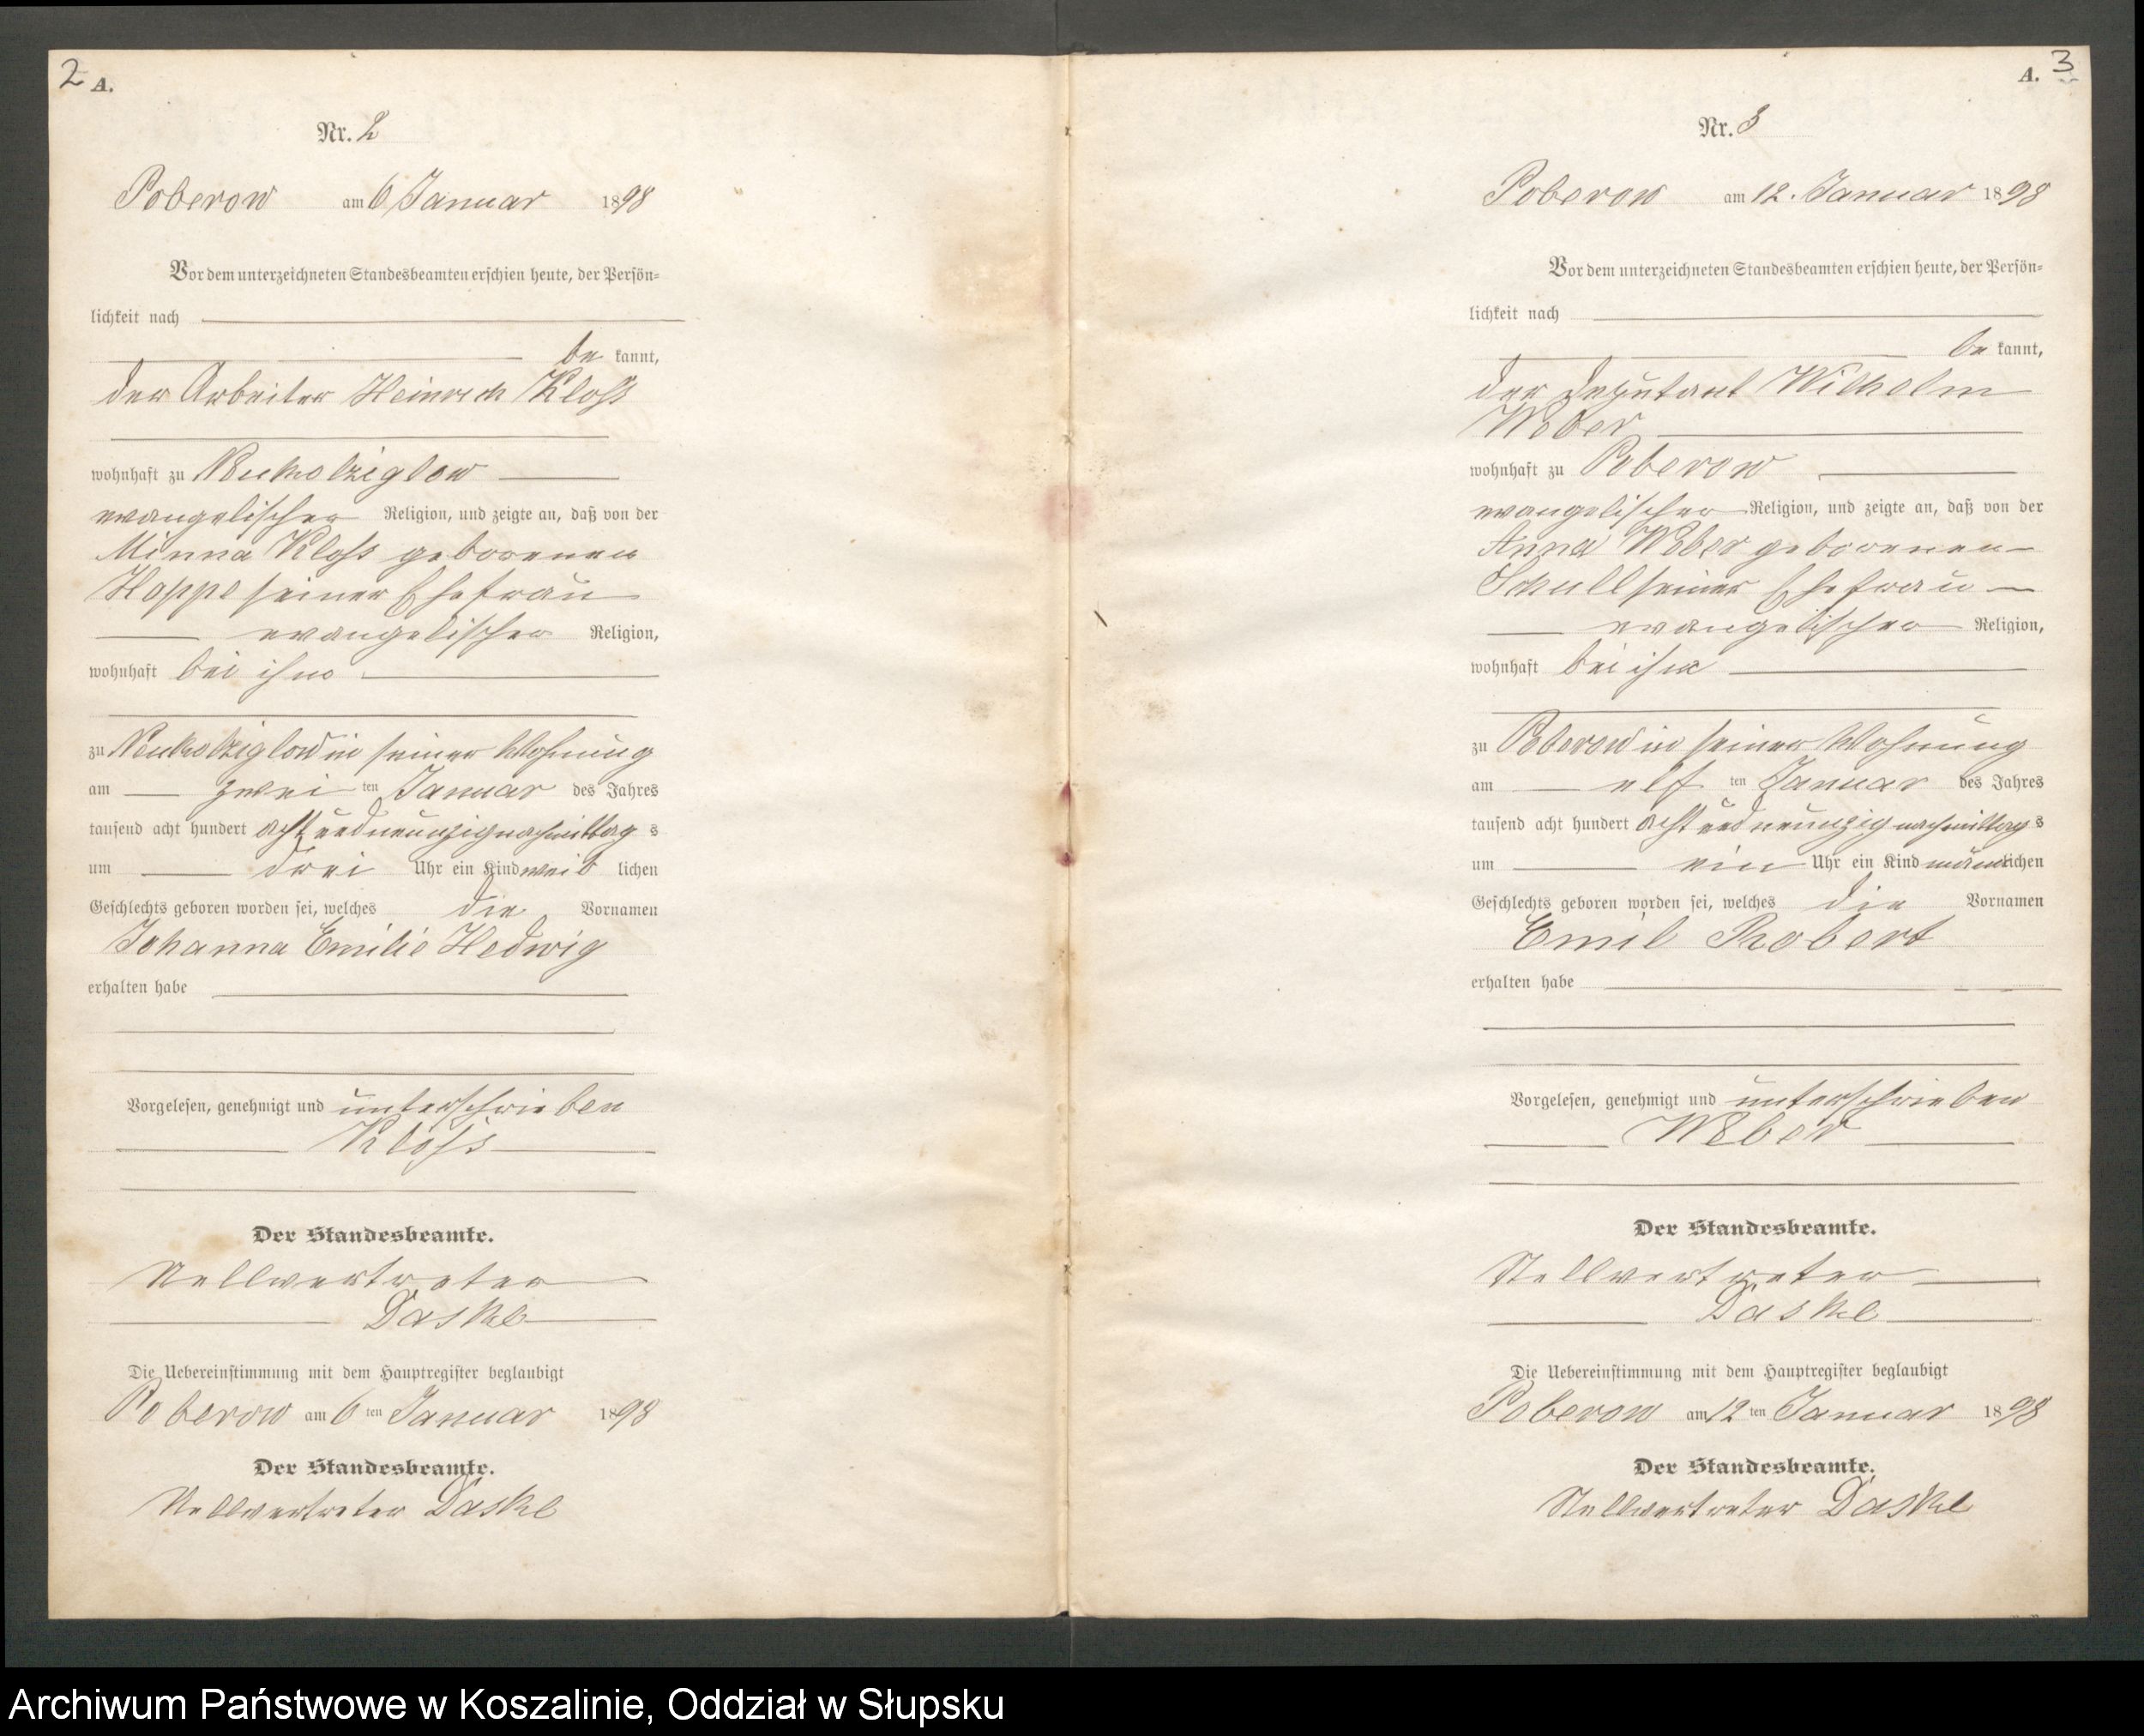 2 A.
Nr. 2
Poberow am 6 Januar 1898
Vor dem unterzeichneten Standesbeamten erschien heute, der Persön-
lichkeit nach
be kannt,
der Arbeiter Heinrich Kloss
wohnhaft zu Neukolziglow
evangelischer Religion, und zeigte an, daß von der
Minna Kloss geborenen
Hoppe seiner Ehefrau
evangelischer Religion,
wohnhaft bei ihm
zu Neukolziglow in seiner Wohnung
am zwei ten Januar des Jahres
tausend acht hundert acht und neunzig nachmittag s
um drei Uhr ein Kind weib lichen
Geschlechts geboren worden sei, welches die Vornamen
Johanna Emilie Hedwig
erhalten habe
Vorgelesen, genehmigt und unterschrieben
Kloss
Der Standesbeamte.
Stellvertreter
Daske
Die Uebereinstimmung mit dem Hauptregister beglaubigt
Poberow am 6 ten Januar 1898
Der Standesbeamte.
Stellvertreter Daske
A. 3
Nr. 3
Poberow am 12. Januar 1898
Vor dem unterzeichneten Standesbeamten erschien heute, der Persön-
lichkeit nach
be kannt,
der Deputant Wilhelm
Weber
wohnhaft zu Poberow
evangelischer Religion, und zeigte an, daß von der
Anna Weber geborenen
Schull seiner Ehefrau
evangelischer Religion,
wohnhaft bei ihm
zu Poberow in seiner Wohnung
am elf ten Januar des Jahres
tausend acht hundert acht und neunzig nachmittag s
um ein Uhr ein Kind männlichen
Geschlechts geboren worden sei, welches die Vornamen
Emil Robert
erhalten habe
Vorgelesen, genehmigt und unterschrieben
Weber
Der Standesbeamte.
Stellvertreter
Daske
Die Uebereinstimmung mit dem Hauptregister beglaubigt
Poberow am 12 ten Januar 1898
Der Standesbeamte.
Stellvertreter Daske
Archiwum Państwowe w Koszalinie, Oddział w Słupsku